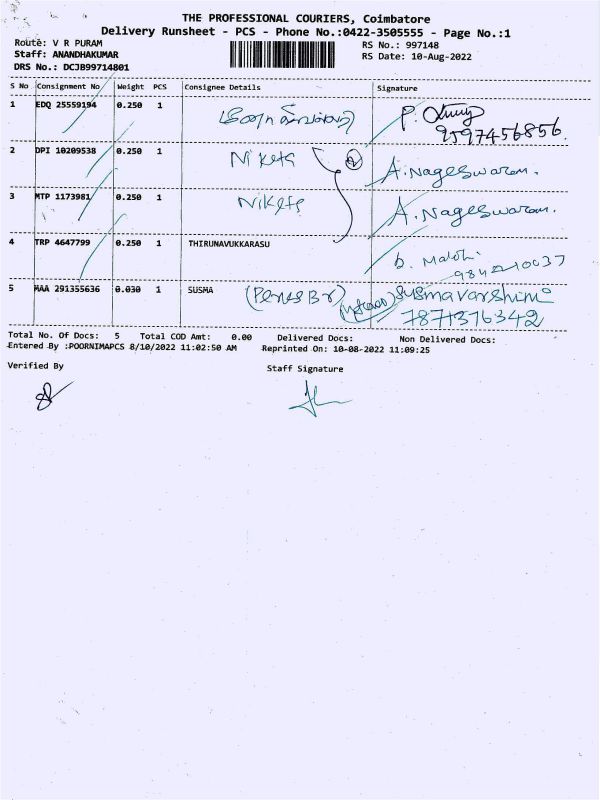 THE PROFESSIONAL COURIERS, Coimbatore
Delivery Runsheet - PCS - Phone No.:0422-3505555 - Page No.:1
Route: V R PURAM
RS No.: 997148
Staff: ANANDHAKUMAR
RS Date: 10-Aug-2022
DRS No.: DCJB99714801
S No Consignment No Weight PCS Consignee Details Signature
1 EDQ 25559194 0.250 1 P.
9597456856.
2 DPI 10209538 0.250 1 Nikets A. Nageswaran.
3 MTP 1173981 0.250 1 Nikets A. Nageswaran.
4 TRP 4647799 0.250 1 THIRUNAVUKKARASU
5 MAA 291355636 0.030 1 SUSMA Susmavarshini
7871376342
Total No. Of Docs: 5 Total COD Amt: 0.00 Delivered Docs: Non Delivered Docs:
Entered By :POORNIMAPCS 8/10/2022 11:02:50 AM Reprinted On: 10-08-2022 11:09:25
Verified By Staff Signature